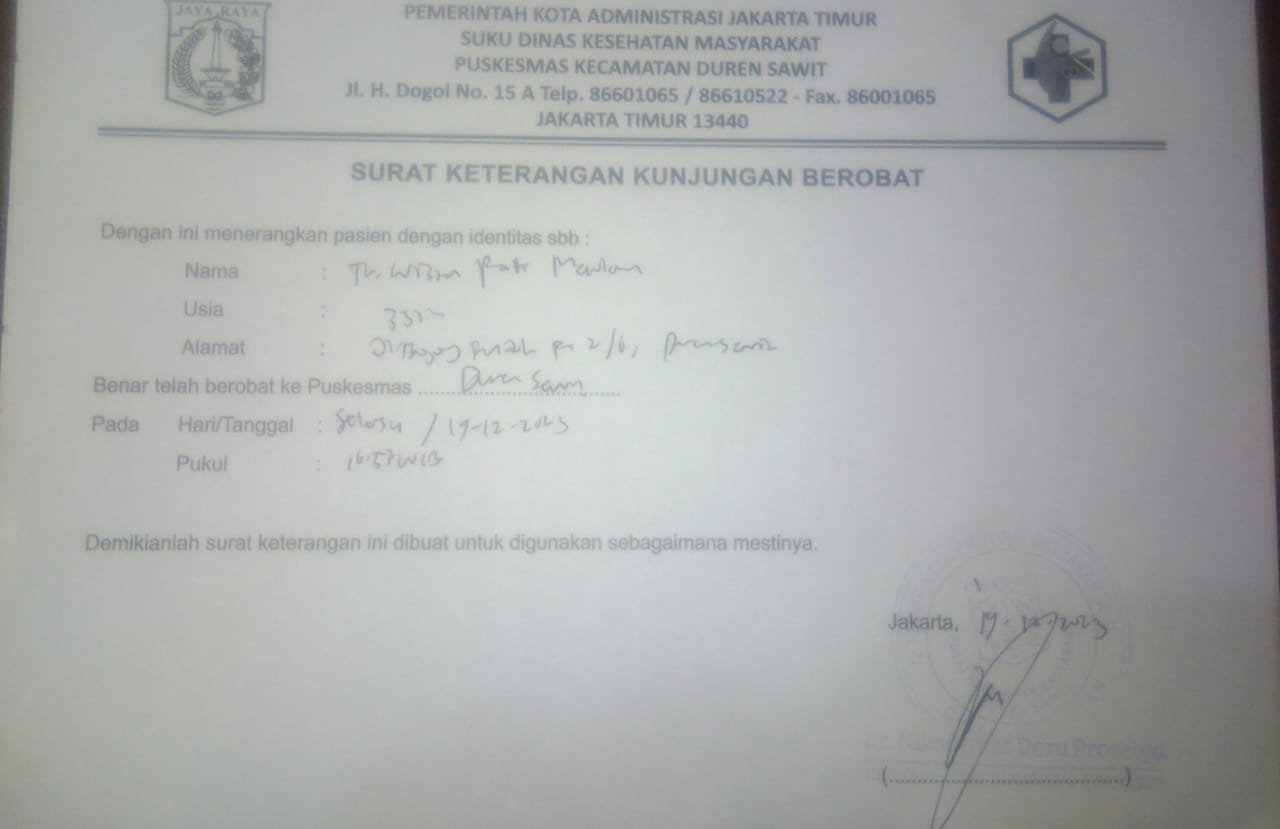 JAYA RAYA
PEMERINTAH KOTA ADMINISTRASI JAKARTA TIMUR
SUKU DINAS KESEHATAN MASYARAKAT
PUSKESMAS KECAMATAN DUREN SAWIT
Jl. H. Dogol No. 15 A Telp. 86601065 / 86610522 - Fax. 86001065
JAKARTA TIMUR 13440
SURAT KETERANGAN KUNJUNGAN BEROBAT
Dengan ini menerangkan pasien dengan identitas sbb :
Nama : Tn.
Usia :
Alamat : 2/6,
Benar telah berobat ke Puskesmas Duren Sawit
Pada Hari/Tanggal : Selasa / 19-12-2023
Pukul : 16.57 WIB
Demikianlah surat keterangan ini dibuat untuk digunakan sebagaimana mestinya.
Jakarta, 19-12-2023
dr.